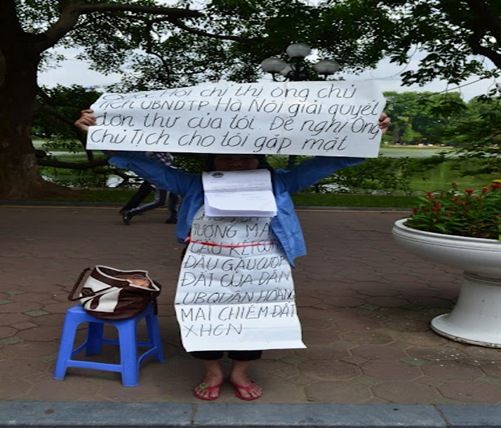 chỉ thị ông chủ
UBNDTP Hà Nội giải quyết
đơn thư của tôi. Đề nghị Ông
Chủ Tịch cho tôi gặp mặt
TƯỚNG MA
CẤU KẾT
ĐẦU GẤU
ĐẤT CỦA DÂN
UB QUẬN HOÀNG
MAI CHIẾM ĐẤT
XHCN